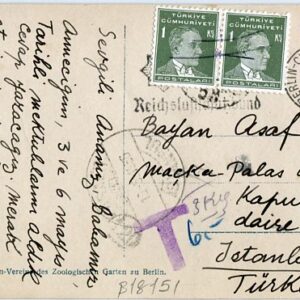 Sevgili Anamız, Babamız,
Annecigim, 3 ve 6 mayıs
Tarihli mektublarını aldık
cevap yazacağız, merak
TÜRKİYE
CÜMHURİYETİ
1 KŞ
POSTALARI
TÜRKİYE
CÜMHURİYETİ
1 KŞ
POSTALARI
BERLIN
Reichsluftschutzbund
Bayan Asaf
Maçka-Palas
Kapu
daire
Istanbul
Türki
T
n-Vereins des Zoologischen Garten zu Berlin.
B18151